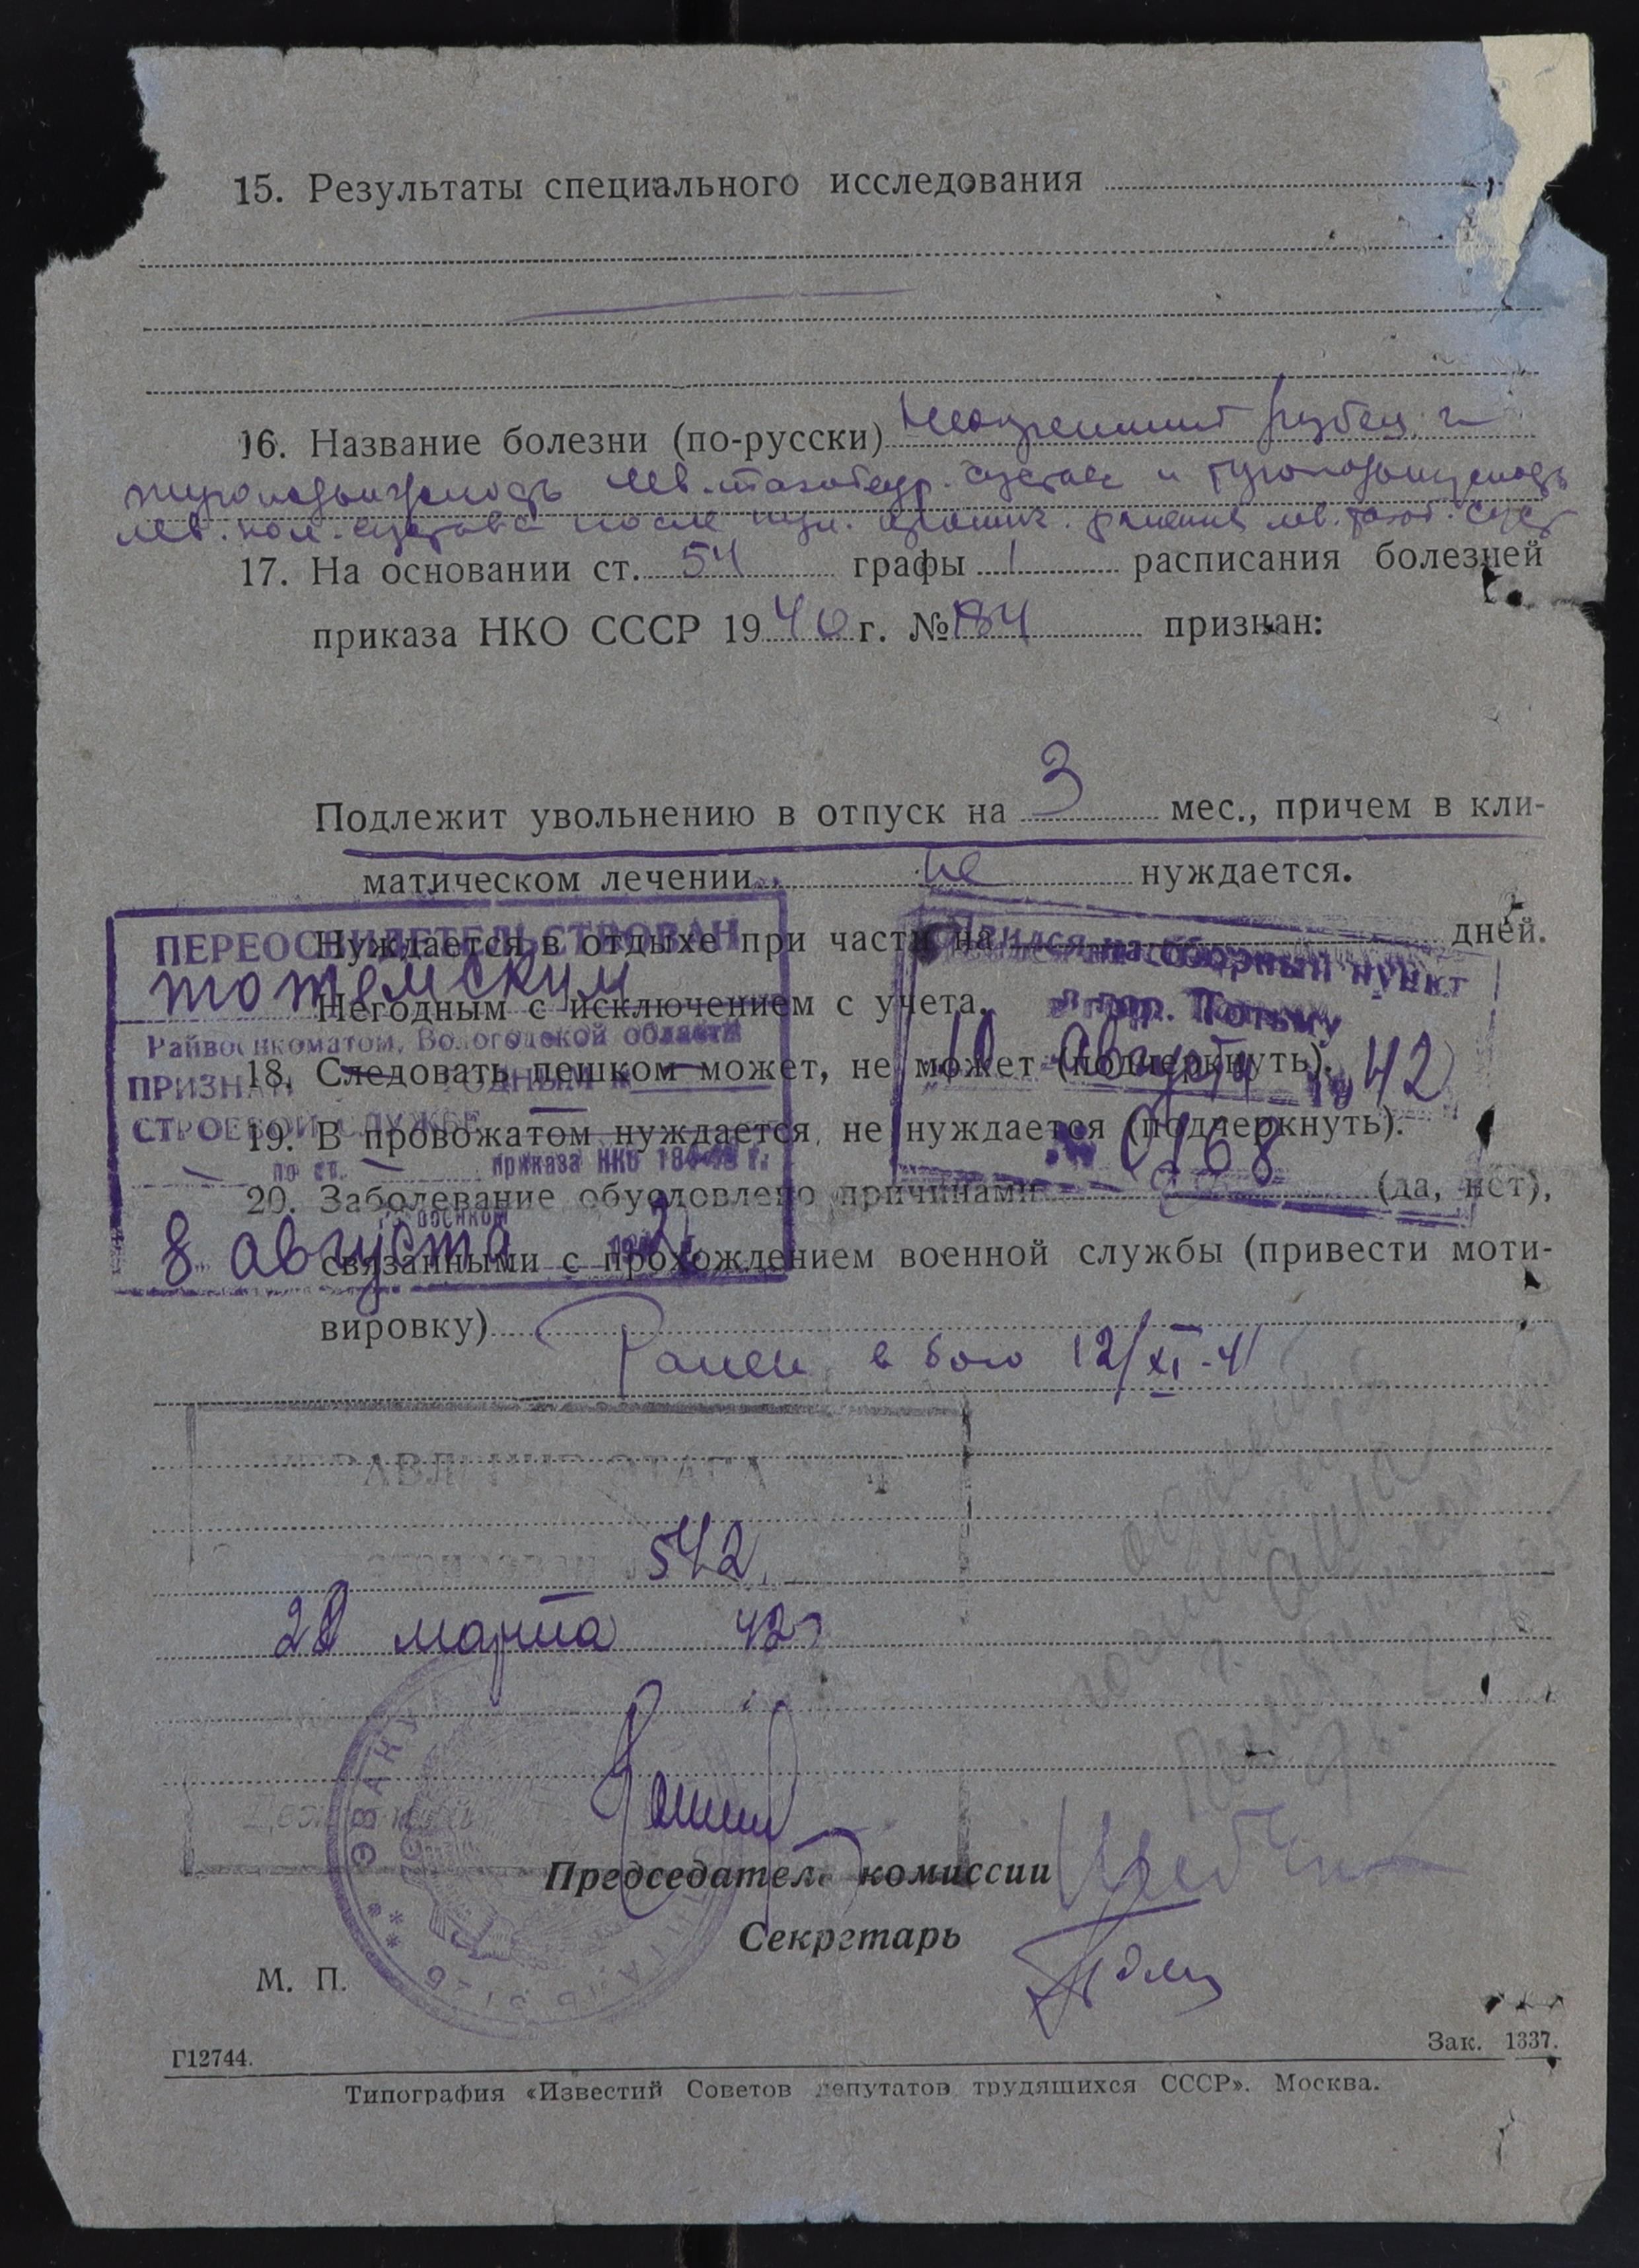 15. Результаты специального исследования
16. Название болезни (по-русски) Неокрепший рубец и
тугоподвижность лев. тазобедр. сустава и тугоподвижность
лев. кол. сустава после ранения лев. суст
17. На основании ст. 54 графы 1 расписания болезней
приказа НКО СССР 1940 г. № 184 признан:
Подлежит увольнению в отпуск на 3 мес., причем в кли-
матическом лечении не нуждается.
Нуждается в отдыхе при части на дней.
Негодным с исключением с учета.
18. Следовать пешком может, не может (подчеркнуть).
19. В провожатом нуждается, не нуждается (подчеркнуть).
20. Заболевание обусловлено причинами (да, нет),
связанными с прохождением военной службы (привести моти-
вировку)
Ранен в бою 12/XI-41
ПЕРЕОСВИДЕТЕЛЬСТВОВАН
тотемским
Райвоенкоматом, Вологодской области
ПРИЗНАН ГОДНЫМ к
СТРОЕВОЙ СЛУЖБЕ
по ст. приказа НКО 184-40 г.
Райвоенком
8 августа 1942
явился на сборный пункт
в гор. Тотьму
10 августа 1942
№ 0168
УПРАВЛЕНИЕ ЭТАПА
542
28 марта 42
ЭВАКО
Председатель комиссии
Секретарь
М. П.
Г12744.
Зак. 1337.
Типография «Известий Советов депутатов трудящихся СССР». Москва.